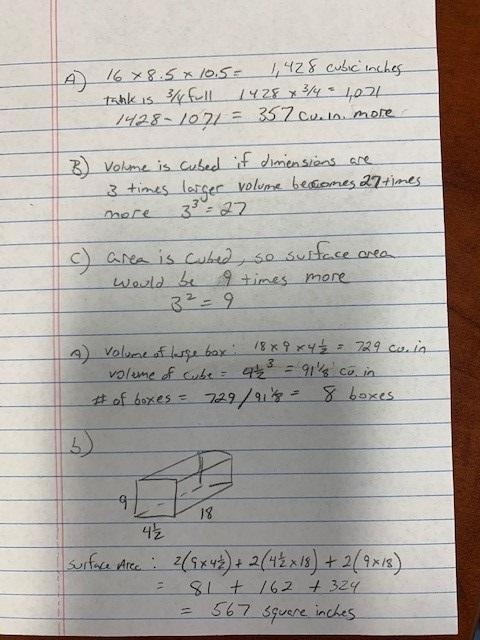 A) 16 x 8.5 x 10.5 = 1,428 cubic inches
tank is 3/4 full 1428 x 3/4 = 1,071
1428 - 1071 = 357 cu. in. more
B) Volume is cubed if dimensions are
3 times larger volume becomes 27 times
more 3³ = 27
C) area is cubed, so surface area
would be 9 times more
3² = 9
A) volume of large box: 18 x 9 x 4½ = 729 cu. in
volume of cube = 4½³ = 91⅛ cu. in
# of boxes = 729/91⅛ = 8 boxes
b)
9
18
4½
Surface Area: 2(9x4½) + 2(4½x18) + 2(9x18)
= 81 + 162 + 324
= 567 square inches